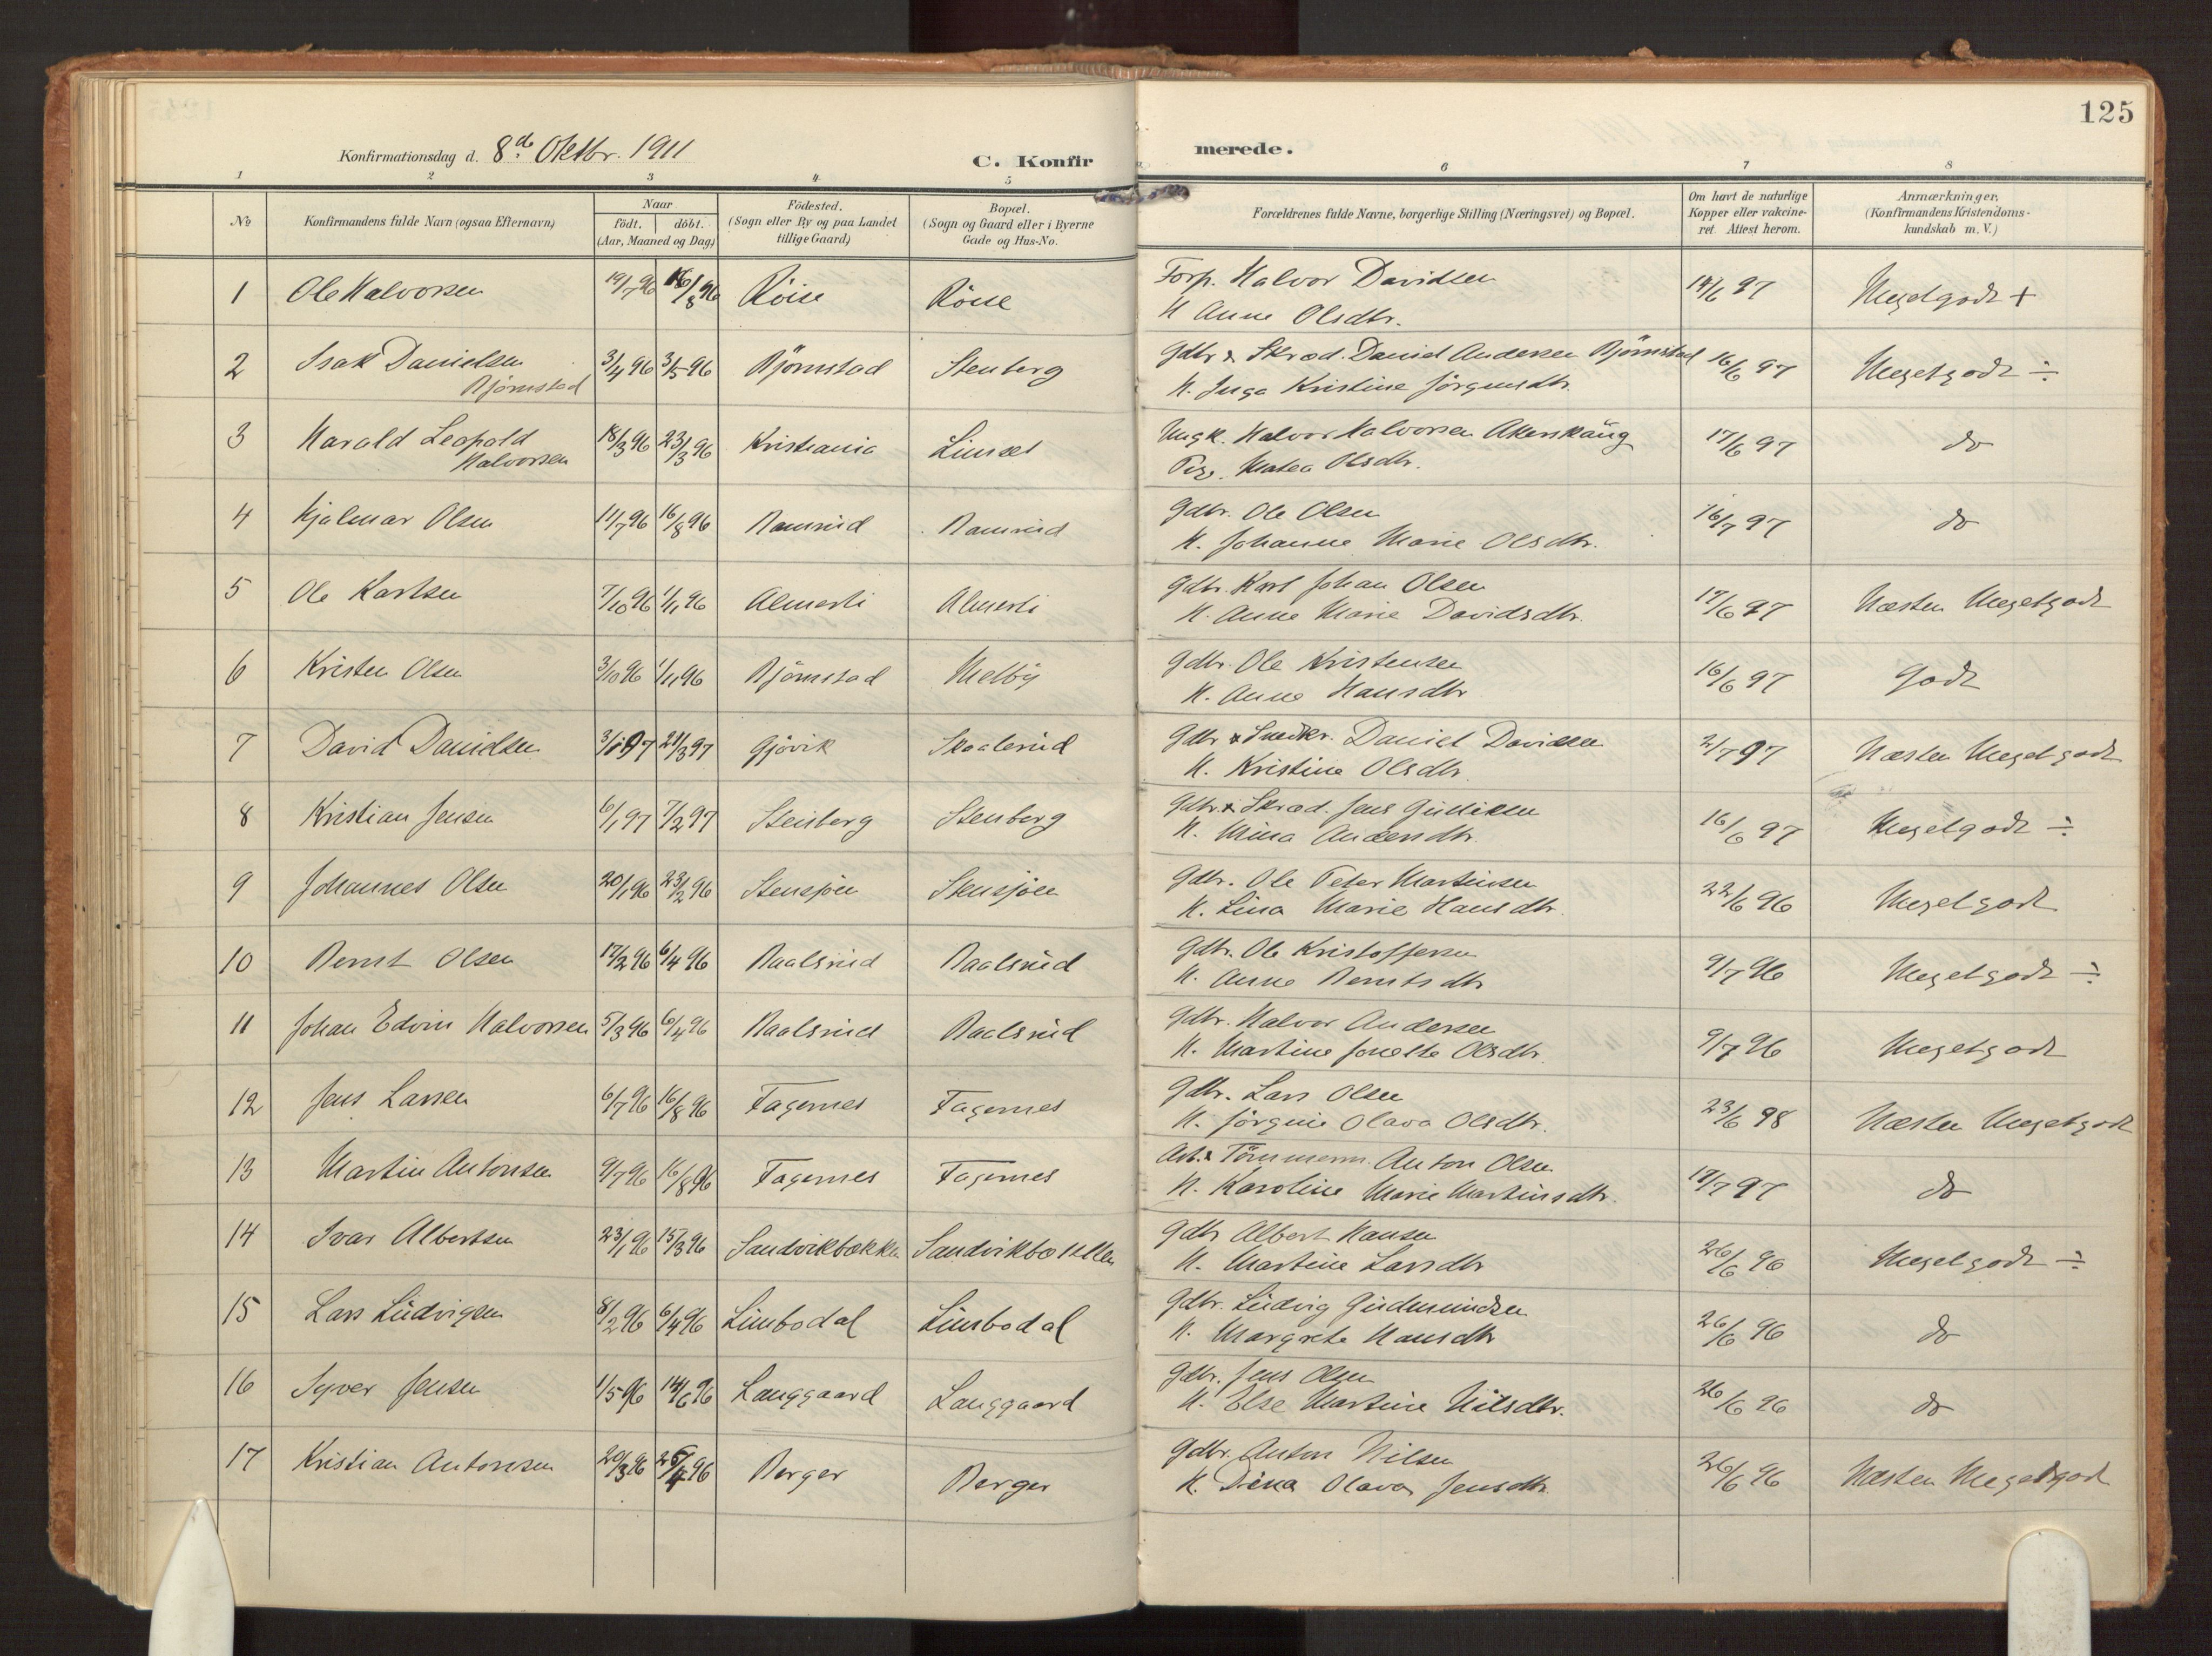 125
Konfirmationsdag d. 8de Oktbr. 1911
C. Konfirmerede.
1 2 3 4 5 6 7 8
No
Konfirmandens fulde Navn (ogsaa Efternavn)
Naar
födt. döbt.
(Aar, Maaned og Dag)
Födested.
(Sogn eller By og paa Landet
tillige Gaard)
Bopæl.
(Sogn og Gaard eller i Byerne
Gade og Hus-No.
Forældrenes fulde Navne, borgerlige Stilling (Næringsvei) og Bopæl.
Om havt de naturlige
Kopper eller vakcine-
ret. Attest herom.
Anmærkninger.
(Konfirmandens Kristendoms-
kundskab m. V.)
1 Ole Halvorsen 19/7 96 16/8 96 Röise Röise Forp. Halvor Davidsen 14/6 97 Megetgodt +
H Anne Olsdtr.
2 Isak Danielsen 3/4 96 3/5 96 Björnstad Stenberg Gdbr & Skræd. Daniel Andersen Björnstad 16/6 97 Megetgodt ÷
Björnstad H. Inga Kristine Jörgensdtr
3 Harald Leopold 18/3 96 23/3 96 Kristiania Limset Ungk. Halvor Halvorsen 17/6 97 do
Halvorsen Pige. Matea Olsdtr.
4 Hjalmar Olsen 11/7 96 16/8 96 Ramsrud Ramsrud Gdbr. Ole Olsen 16/7 97 do
H. Johanne Marie Olsdtr.
5 Ole Karlsen 7/10 96 1/11 96 Almerli Almerli Gdbr. Karl Johan Olsen 17/6 97 Næsten Megetgodt
H. Anne Marie Davidsdtr.
6 Kristen Olsen 3/10 96 1/11 96 Björnstad Melby Gdbr. Ole Kristensen 16/6 97 Godt
H. Anne Hansdtr
7 David Danielsen 3/1 97 21/3 97 Gjövik Skoalerud Gdbr & Snedkr. Daniel Davidsen 2/7 97 Næsten Megetgodt
H. Kristine Olsdtr.
8 Kristian Jensen 6/1 97 7/2 97 Stenberg Stenberg Gdbr & Skræd. Jens Gulliksen 16/6 97 Megetgodt ÷
H. Mina Andersdtr.
9 Johannes Olsen 20/1 96 23/2 96 Stensjöen Stensjöen Gdbr. Ole Peter Martinsen 22/6 96 Megetgodt
H. Lina Marie Hansdtr.
10 Bernt Olsen 17/2 96 6/4 96 Baalsrud Baalsrud Gdbr. Ole Kristoffersen 9/7 96 Megetgodt ÷
H. Anne Berntsdtr
11 Johan Edvin Halvorsen 5/3 96 6/4 96 Baalsrud Baalsrud Gdbr. Halvor Andersen 9/7 96 Megetgodt
H. Martine Jonette Olsdtr.
12 Jens Larsen 6/7 96 16/8 96 Fagernes Fagernes Gdbr. Lars Olsen 23/6 98 Næsten Megetgodt
H. Jörgine Olava Olsdtr.
13 Martin Antonsen 9/7 96 16/8 96 Fagernes Fagernes Arb. & Tömmerm. Anton Olsen 17/7 97 do
H. Karoline Marie Martinsdtr.
14 Ivar Albertsen 23/1 96 15/3 96 Sandvikbækken Sandvikbækken Gdbr Albert Hansen 26/6 96 Megetgodt ÷
H. Martine Larsdtr
15 Lars Ludvigsen 8/2 96 6/4 96 Limbodal Limbodal Gdbr. Ludvig Gudmundsen 26/6 96 do
H. Margrete Hansdtr
16 Syver Jensen 1/5 96 14/6 96 Langgaard Langgaard Gdbr. Jens Olsen 26/6 96 do
H. Else Martine Nilsdtr.
17 Kristian Antonsen 20/3 96 26/4 96 Berger Berger Gdbr. Anton Nilsen 26/6 96 Næsten Megetgodt
H. Dina Olava Jensdtr.